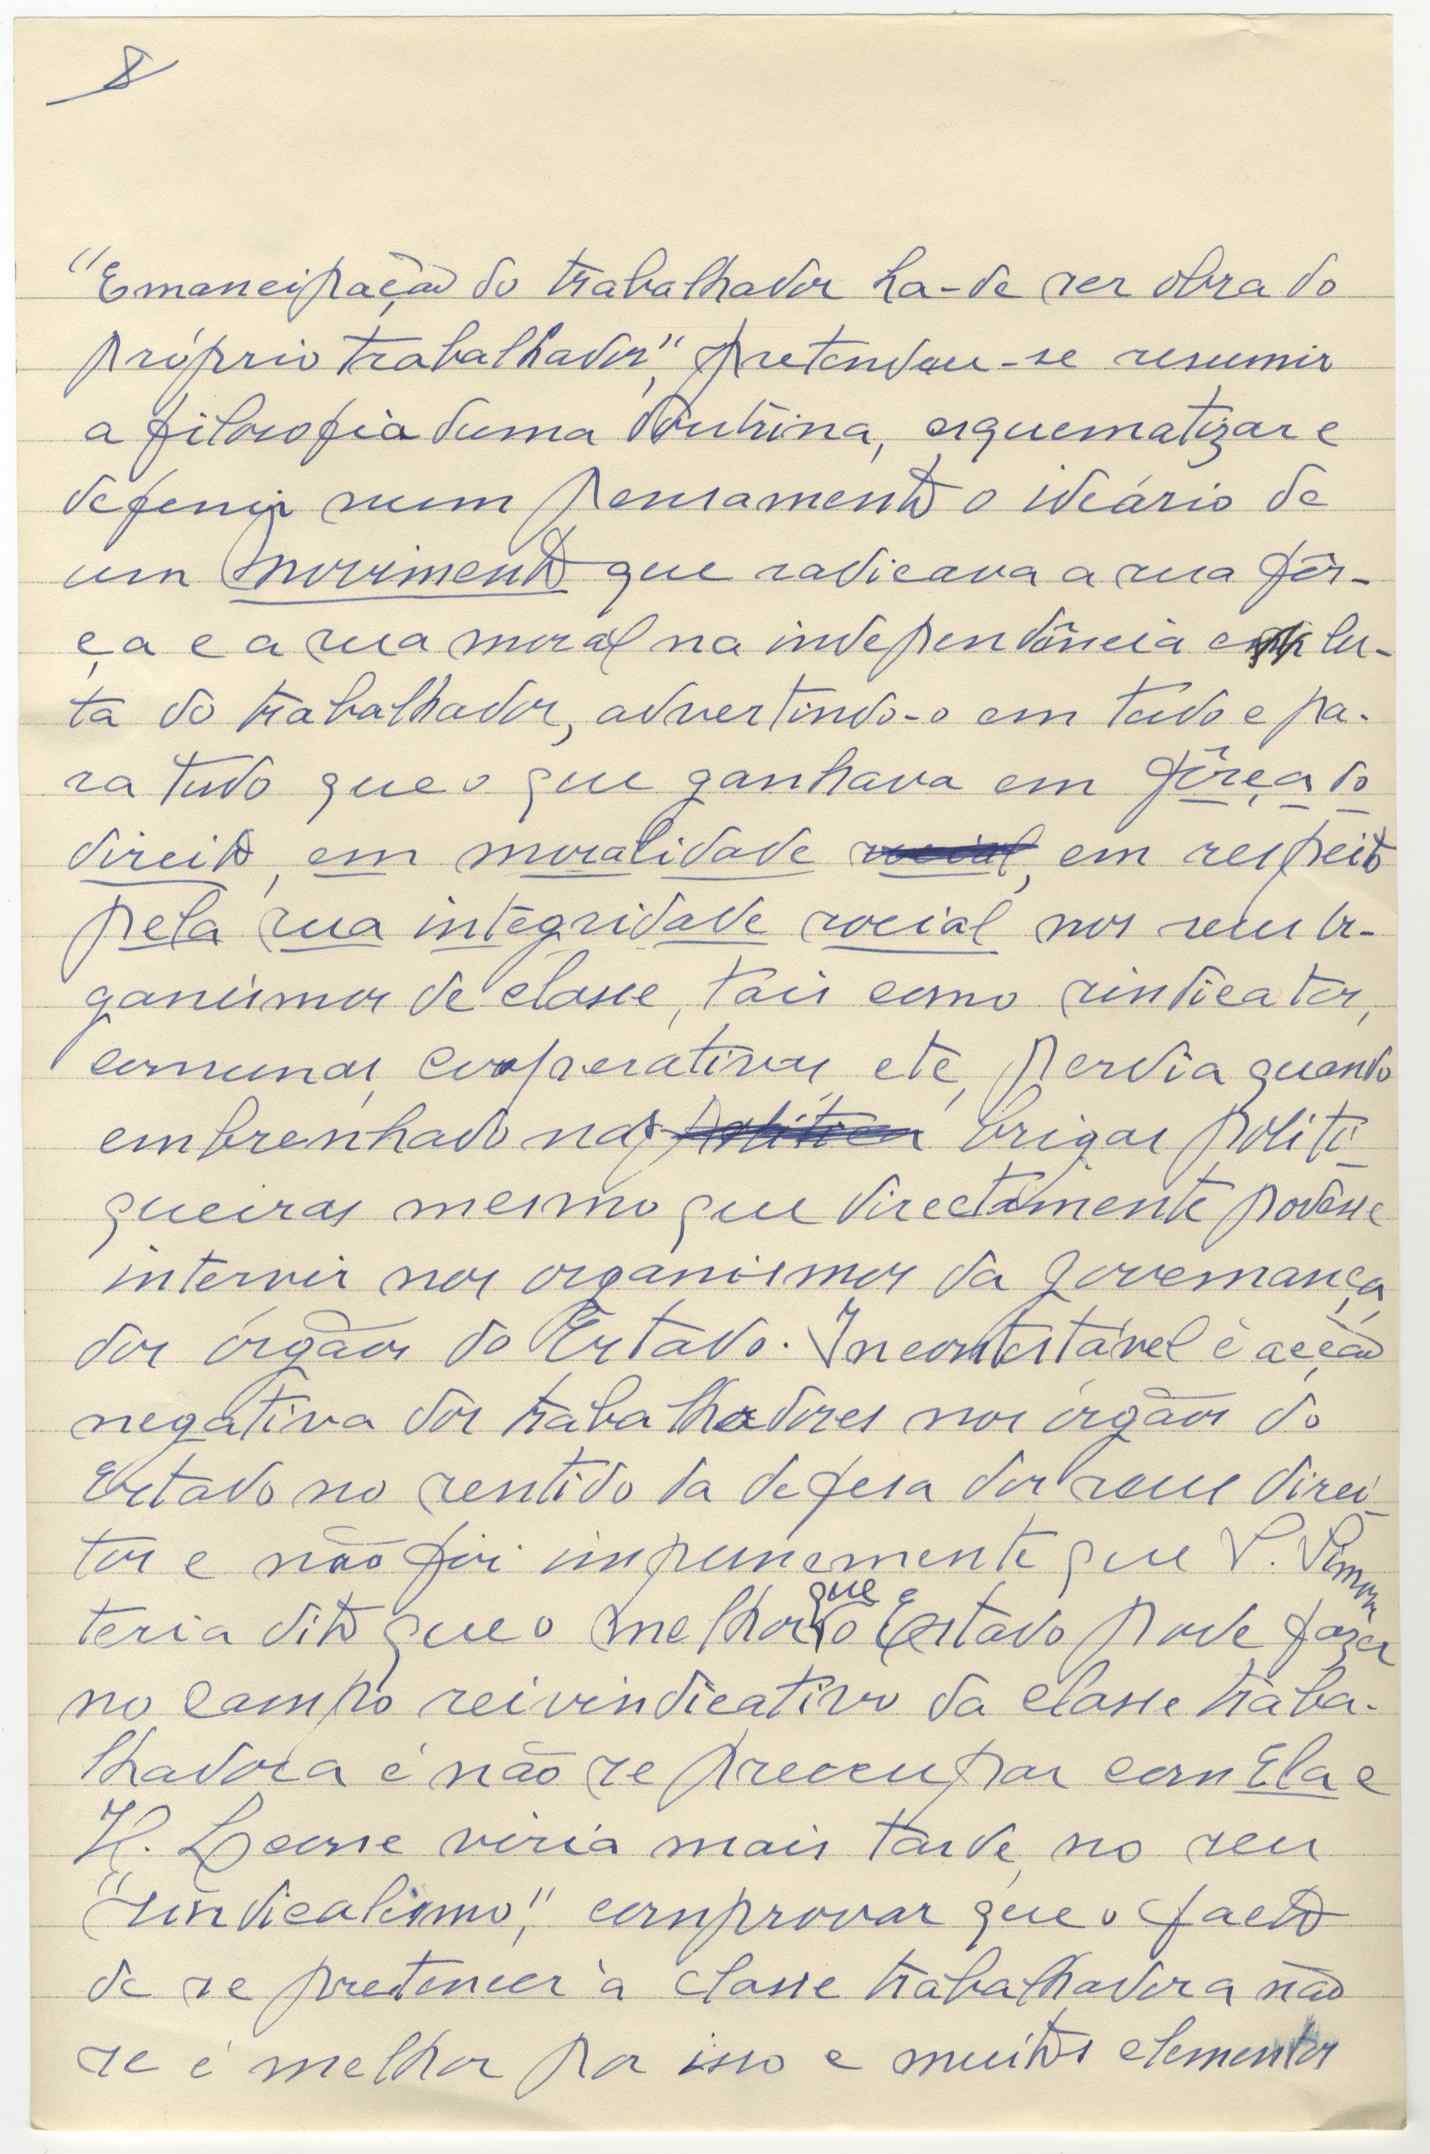 8
"Emancipação do trabalhador ha-de ser obra do
próprio trabalhador", pretendeu-se resumir
a filosofia duma doutrina, esquematizar e
defenir num pensamento o ideário de
um movimento que radicava a sua fôr-
ça e a sua moral na independência e na lu-
ta do trabalhador, advertindo-o em tudo e pa-
ra tudo que o que ganhava em fôrça do
direito, em moralidade social, em respeito
pela sua integridade social nos seus or-
ganismos de classe, tais como sindicatos,
comunas, cooperativas, etc, perdia quando
embrenhado nas política brigas politi-
queiras mesmo que directamente podesse
intervir nos organismos da governança,
dos órgãos do Estado. Incontestável é acção
negativa dos trabalhadores nos órgãos do
Estado no sentido da defesa dos seus direi-
tos e não foi impunemente que S. Simon
teria dito que o melhor que o Estado pode fazer
no campo reivindicativo da classe traba-
lhadora é não se preocupar com Ela e
H. Leone viria mais tarde, no seu
"sindicalismo", comprovar que o facto
de se pretencer à classe trabalhadora não
se é melhor por isso e muitos elementos